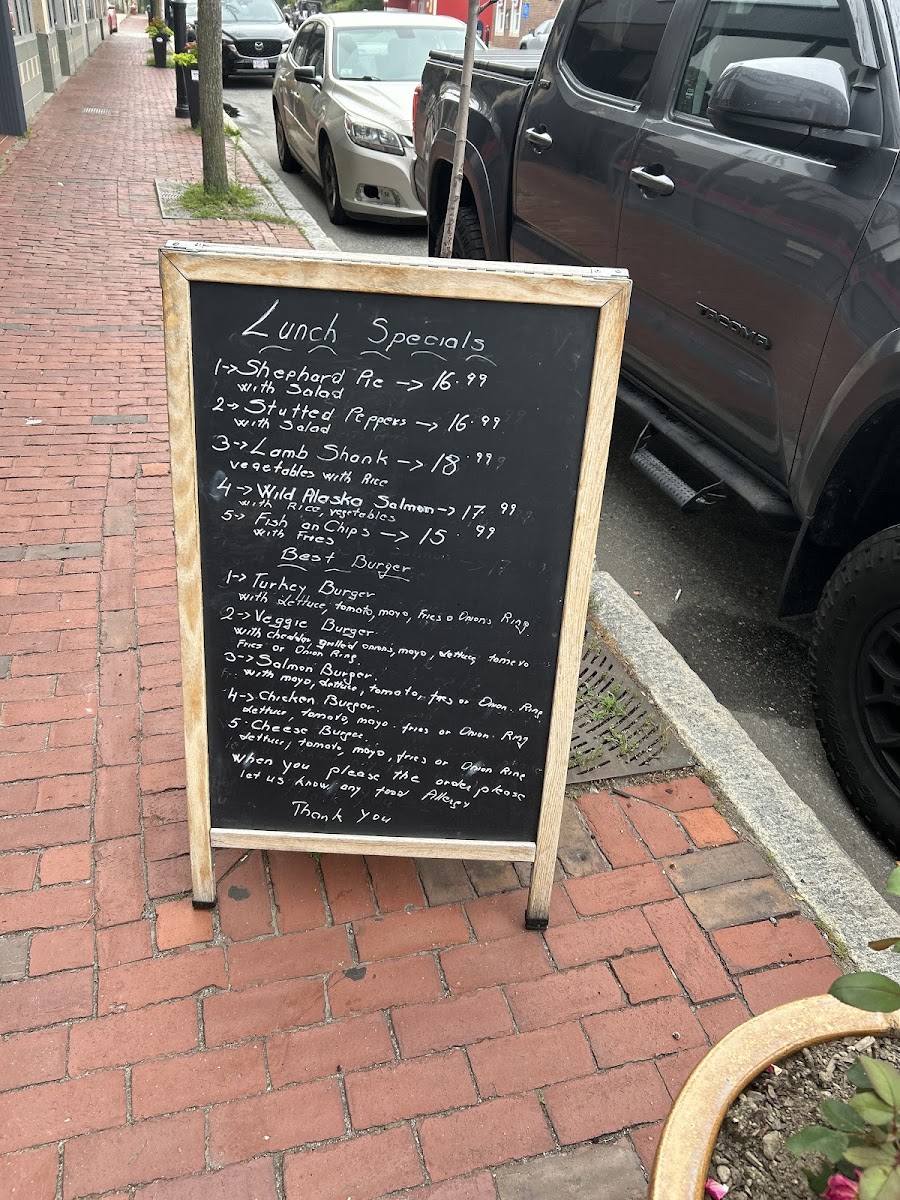 Lunch Specials
1-> Shephard Pie -> 16.99
with Salad
2-> Stutted Peppers -> 16.99
with Salad
3-> Lamb Shank -> 18.99
vegetables with Rice
4-> Wild Alaska Salmon -> 17.99
with Rice, vegetables
5-> Fish an Chips -> 15.99
with Fries
Best Burger
1-> Turkey Burger
with Lettuce, tomato, mayo, Fries o Onions Ring
2-> Veggie Burger
with cheddar, grilled onions, mayo, lettuce
Fries or Onion Ring
3-> Salmon Burger.
with mayo, lettuce, tomato, fries or Onion. Ring
4-> Chicken Burger.
Lettuce, tomato, mayo. fries or Onion. Ring
5. Cheese Burger.
Lettuce, tomato, mayo, fries or Onion Ring
When you please the order, please
let us know any food Allergy
Thank you
TACOMA